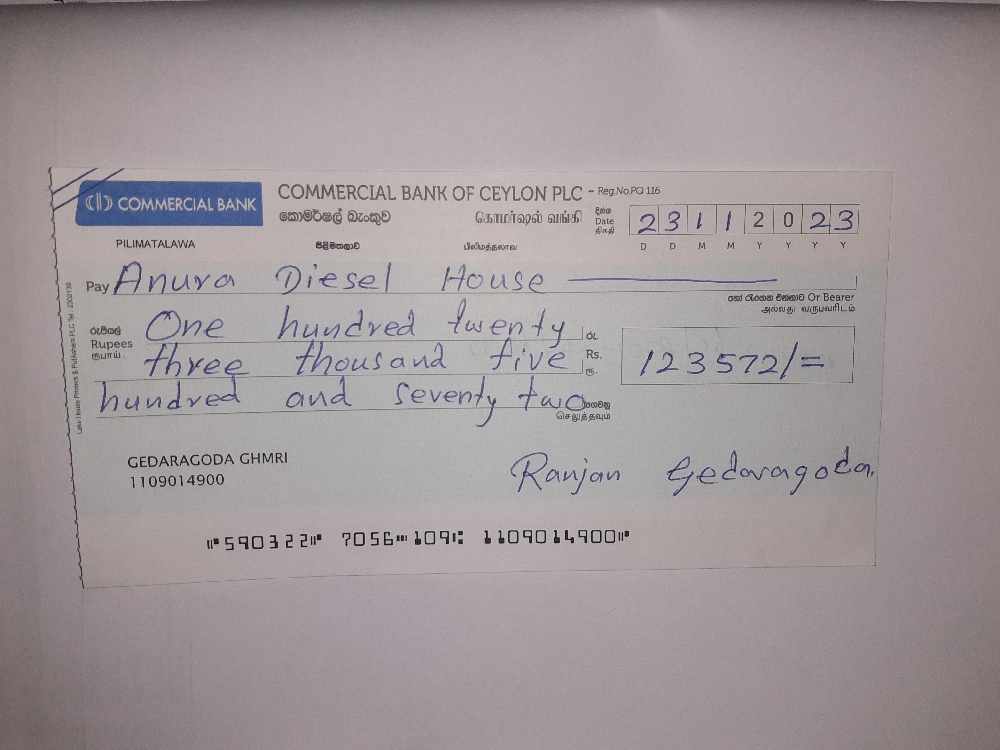 COMMERCIAL BANK
COMMERCIAL BANK OF CEYLON PLC - Reg.No.PQ 116
කොමර්ෂල් බැංකුව கொமர்ஷல் வங்கி
දිනය
Date
திகதி
2 3 1 1 2 0 2 3
D D M M Y Y Y Y
PILIMATALAWA පිළිමතලාව பிலிமத்தலாவ
Pay Anura Diesel House
හෝ රැගෙන එනතාට Or Bearer
அல்லது வருபவரிடம்
රුපියල්
Rupees
ரூபாய்.
One hundred twenty
three thousand five
hundred and seventy two
රු.
Rs.
ரூ.
123572/=
ගෙවනු
செலுத்தவும்
Lake House Printers & Publishers PLC Tel : 2302139
GEDARAGODA GHMRI
1109014900
Ranjan Gedaragoda
⑈590322⑈ 7056⑉109⑆ 1109014900⑈